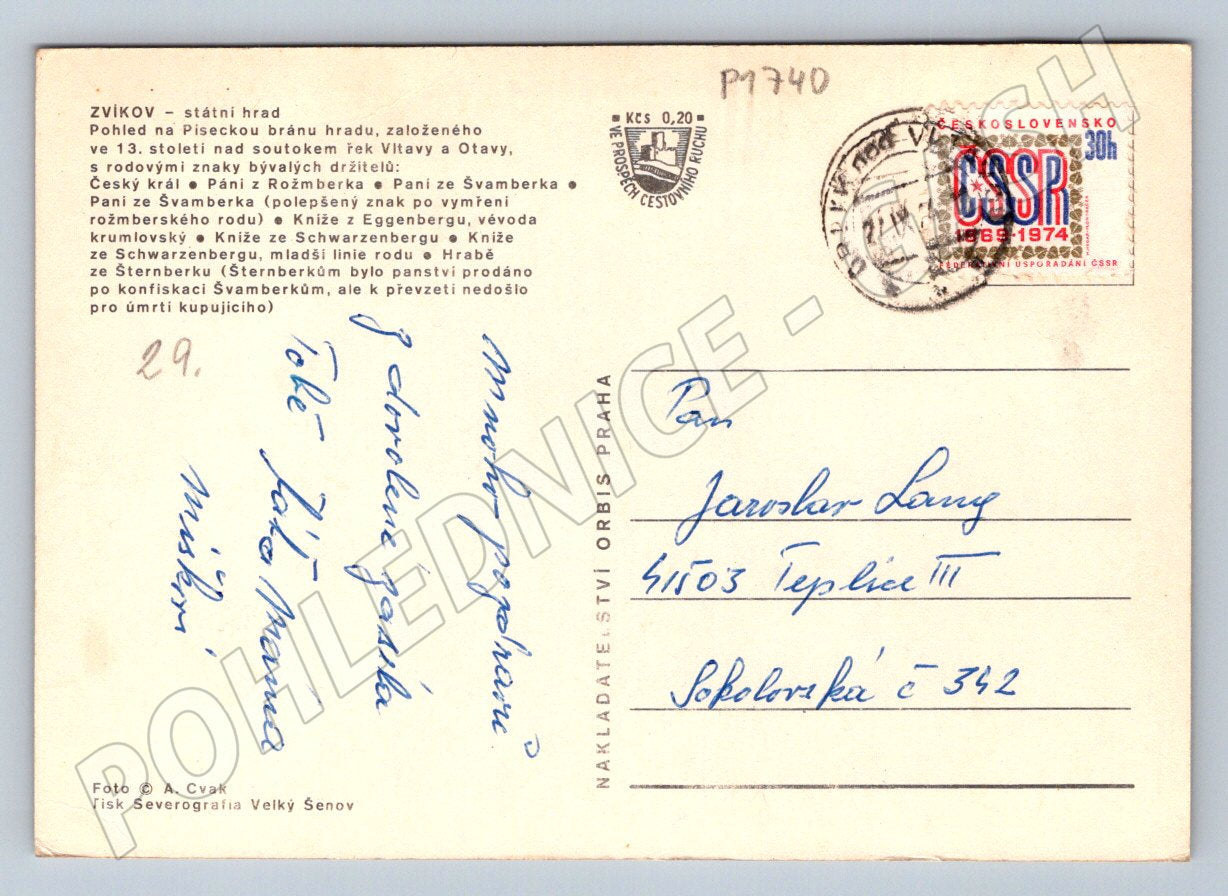 P1740
ZVÍKOV – státní hrad
Pohled na Píseckou bránu hradu, založeného
ve 13. století nad soutokem řek Vltavy a Otavy,
s rodovými znaky bývalých držitelů:
Český král ● Páni z Rožmberka ● Paní ze Švamberka ●
Paní ze Švamberka (polepšený znak po vymření
rožmberského rodu) ● Kníže z Eggenbergu, vévoda
krumlovský ● Kníže ze Schwarzenbergu ● Kníže
ze Schwarzenbergu, mladší linie rodu ● Hrabě
ze Šternberku (Šternberkům bylo panství prodáno
po konfiskaci Švamberkům, ale k převzetí nedošlo
pro úmrtí kupujícího)
Kčs 0,20
VE PROSPĚCH CESTOVNÍHO RUCHU
ČESKOSLOVENSKO
30h
ČSSR
1969-1974
FEDERATIVNÍ USPOŘÁDÁNÍ ČSSR
29.
Mnoho pozdravů
z dovolené zasílá
Tobě Táta Mama
NAKLADATELSTVÍ ORBIS PRAHA
Pan
Jaroslav Lang
41503 Teplice III
Sokolovská č 342
Foto © A. Cvak
Tisk Severografia Velký Šenov
POHLEDNICE - CZECH